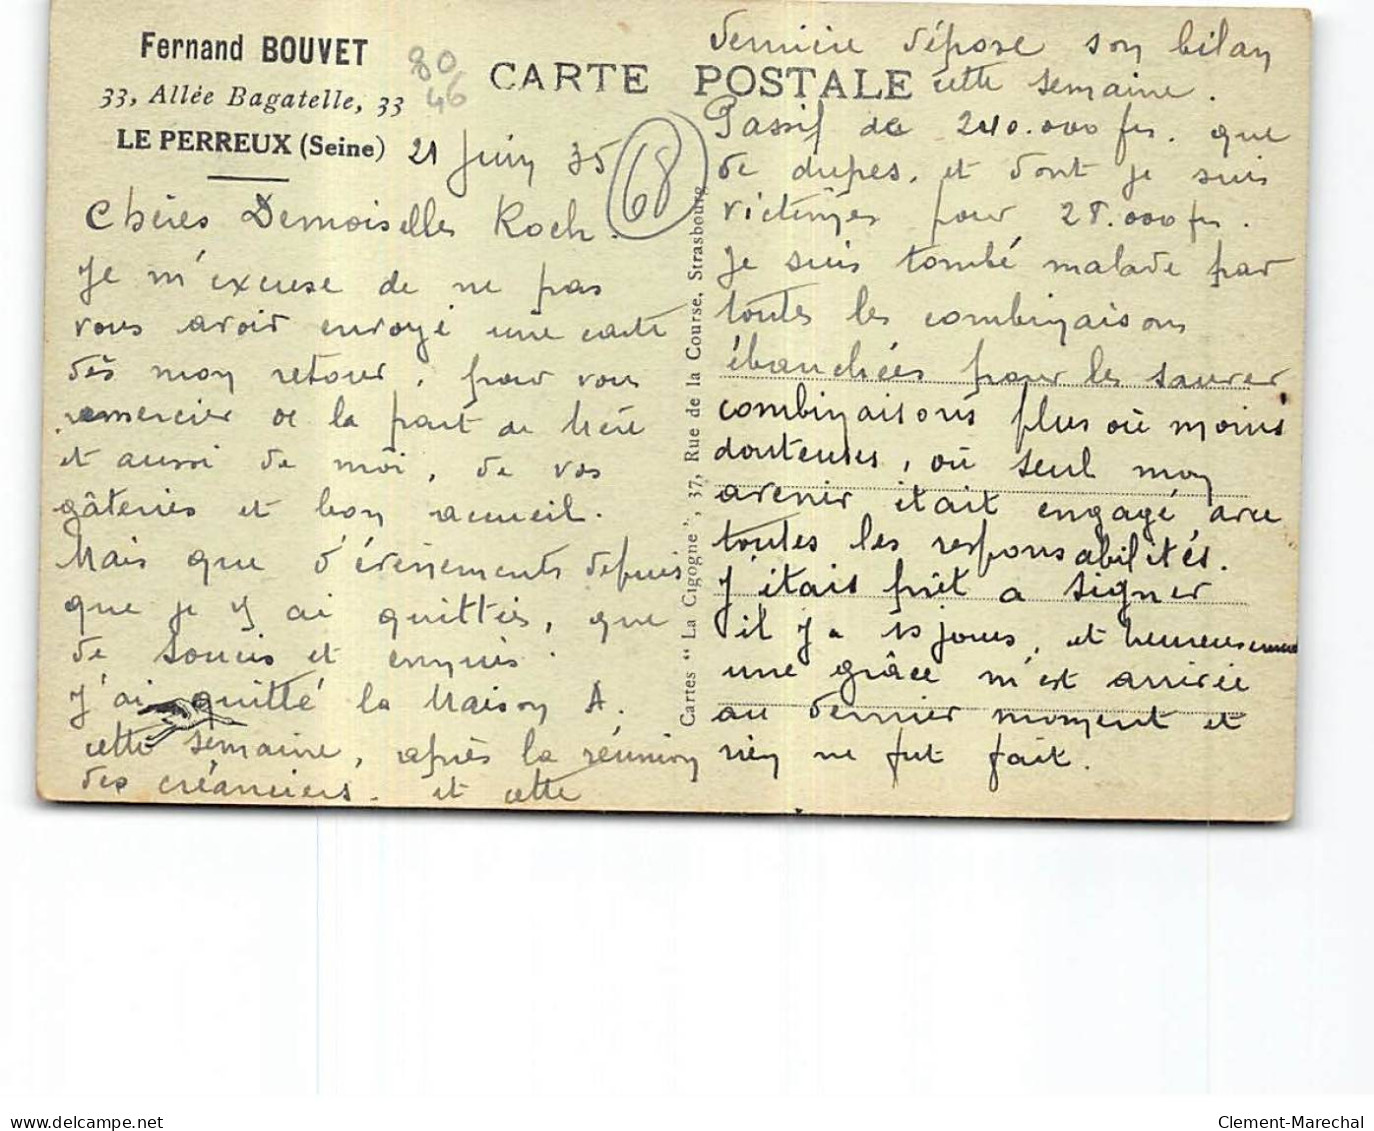 Fernand BOUVET
33, Allée Bagatelle, 33
LE PERREUX (Seine)
80
46
CARTE POSTALE
21 Juin 35
68
Chères Demoiselles Koch.
Je m'excuse de ne pas
vous avoir envoyé une carte
dès mon retour, pour vous
remercier de la part de Mère
et aussi de moi, de vos
gâteries et bon accueil.
Mais que d'évènements depuis
que je y ai quittés, que
de soucis et ennuis.
J'ai quitté la Maison A.
cette semaine, après la réunion
des créanciers. et cette
Cartes "La Cigogne", 37, Rue de la Course, Strasbourg
dernière dépose son bilan
cette semaine.
Passif de 240.000 frs. que
de dupes, et dont je suis
victimes pour 28.000 frs.
Je suis tombé malade par
toutes les combinaisons
ébauchées pour les sauver
combinaisons plus où moins
douteuses, où seul mon
avenir était engagé avec
toutes les responsabilités.
J'étais prêt a signer
il y a 15 jours, et heureusement
une grâce m'est arrivée
au dernier moment et
rien ne fut fait.
www.delcampe.net
Clement-Marechal